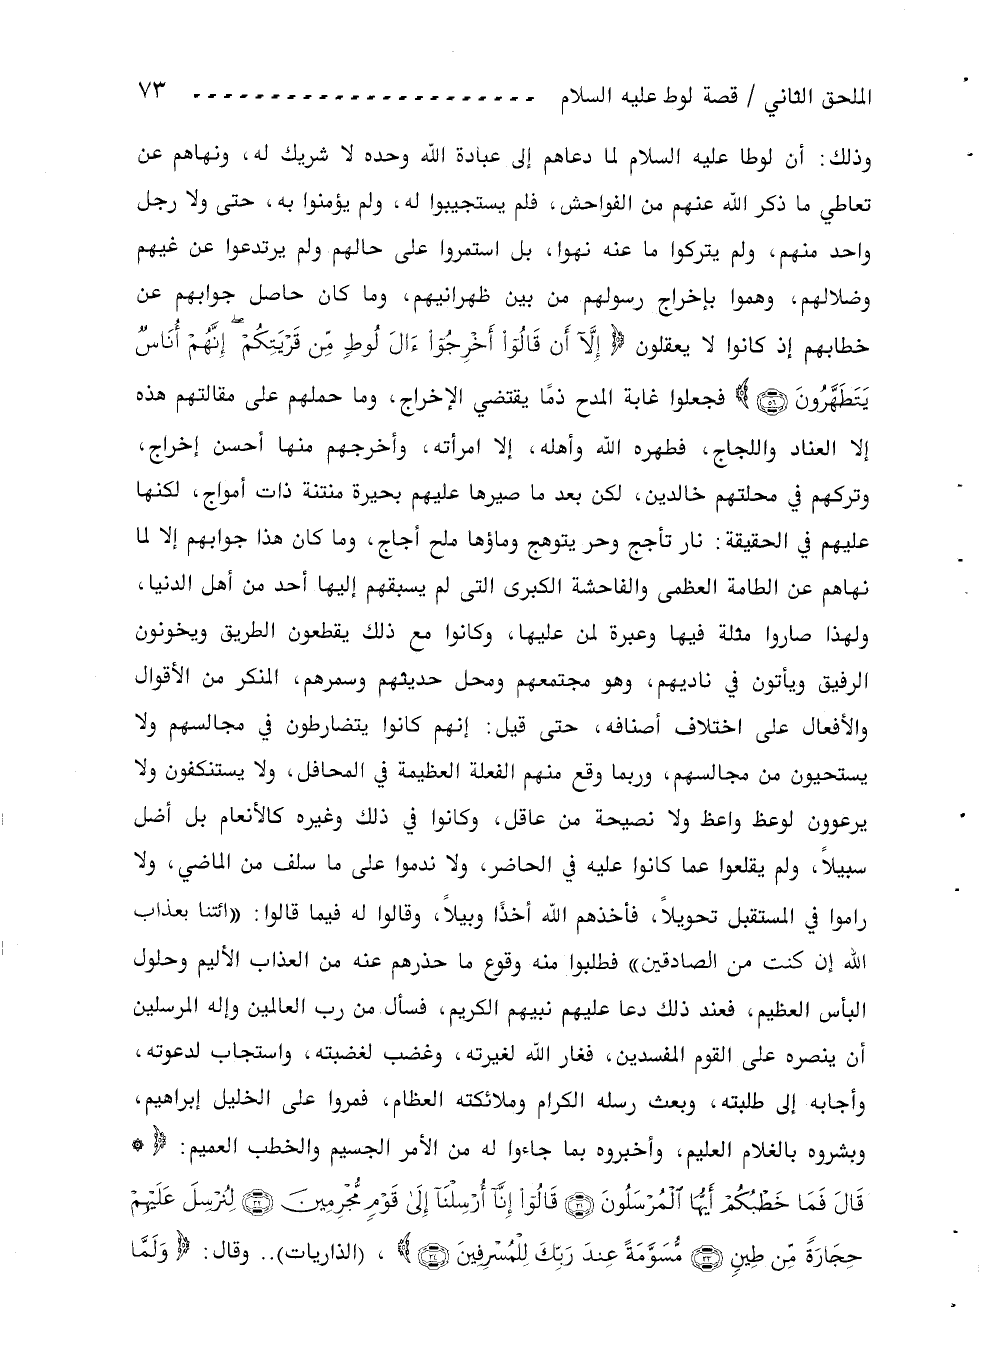 الملحق الثاني / قصة لوط عليه السلام ----------------------- ٧٣
وذلك: أن لوطا عليه السلام لما دعاهم إلى عبادة الله وحده لا شريك له، ونهاهم عن
تعاطي ما ذكر الله عنهم من الفواحش، فلم يستجيبوا له، ولم يؤمنوا به، حتى ولا رجل
واحد منهم، ولم يتركوا ما عنه نهوا، بل استمروا على حالهم ولم يرتدعوا عن غيهم
وضلالهم، وهموا بإخراج رسولهم من بين ظهرانيهم، وما كان حاصل جوابهم عن
خطابهم إذ كانوا لا يعقلون ﴿ إِلَّآ أَن قَالُوٓا۟ أَخْرِجُوٓا۟ ءَالَ لُوطٍ مِّن قَرْيَتِكُمْ ۖ إِنَّهُمْ أُنَاسٌ
يَتَطَهَّرُونَ ۝٥٦ ﴾ فجعلوا غابة المدح ذمًا يقتضي الإخراج، وما حملهم على مقالتهم هذه
إلا العناد واللجاج، فطهره الله وأهله، إلا امرأته، وأخرجهم منها أحسن إخراج،
وتركهم في محلتهم خالدين، لكن بعد ما صيرها عليهم بحيرة منتنة ذات أمواج، لكنها
عليهم في الحقيقة: نار تأجج وحر يتوهج وماؤها ملح أجاج، وما كان هذا جوابهم إلا لما
نهاهم عن الطامة العظمى والفاحشة الكبرى التي لم يسبقهم إليها أحد من أهل الدنيا،
ولهذا صاروا مثلة فيها وعبرة لمن عليها، وكانوا مع ذلك يقطعون الطريق ويخونون
الرفيق ويأتون في ناديهم، وهو مجتمعهم ومحل حديثهم وسمرهم، المنكر من الأقوال
والأفعال على اختلاف أصنافه، حتى قيل: إنهم كانوا يتضارطون في مجالسهم ولا
يستحيون من مجالسهم، وربما وقع منهم الفعلة العظيمة في المحافل، ولا يستنكفون ولا
يرعوون لوعظ واعظ ولا نصيحة من عاقل، وكانوا في ذلك وغيره كالأنعام بل أضل
سبيلاً، ولم يقلعوا عما كانوا عليه في الحاضر، ولا ندموا على ما سلف من الماضي، ولا
راموا في المستقبل تحويلاً، فأخذهم الله أخذًا وبيلاً، وقالوا له فيما قالوا: «ائتنا بعذاب
الله إن كنت من الصادقين» فطلبوا منه وقوع ما حذرهم عنه من العذاب الأليم وحلول
البأس العظيم، فعند ذلك دعا عليهم نبيهم الكريم، فسأل من رب العالمين وإله المرسلين
أن ينصره على القوم المفسدين، فغار الله لغيرته، وغضب لغضبته، واستجاب لدعوته،
وأجابه إلى طلبته، وبعث رسله الكرام وملائكته العظام، فمروا على الخليل إبراهيم،
وبشروه بالغلام العليم، وأخبروه بما جاءوا له من الأمر الجسيم والخطب العميم: ﴿ ۞
قَالَ فَمَا خَطْبُكُمْ أَيُّهَا ٱلْمُرْسَلُونَ ۝٣١ قَالُوٓا۟ إِنَّآ أُرْسِلْنَآ إِلَىٰ قَوْمٍ مُّجْرِمِينَ ۝٣٢ لِنُرْسِلَ عَلَيْهِمْ
حِجَارَةً مِّن طِينٍ ۝٣٣ مُّسَوَّمَةً عِندَ رَبِّكَ لِلْمُسْرِفِينَ ۝٣٤ ﴾ ، (الذاريات).. وقال: ﴿ وَلَمَّا